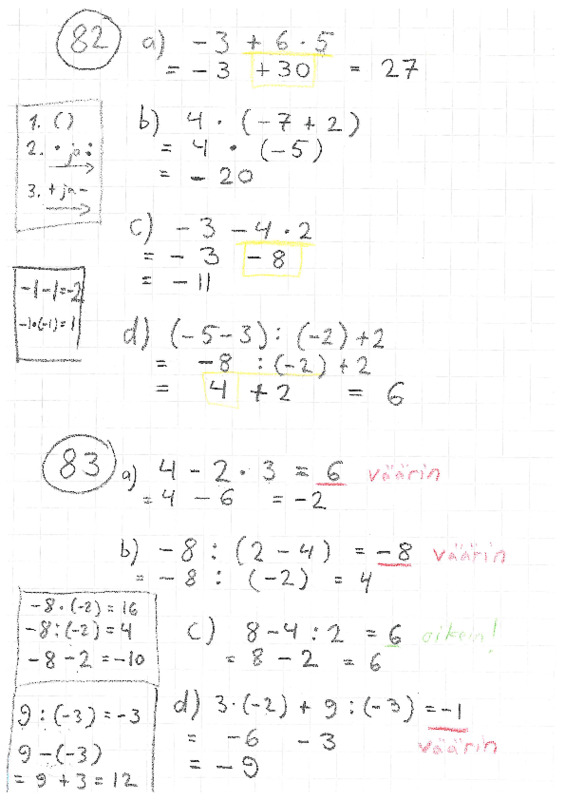 82
a) -3 + 6 · 5
= -3 +30 = 27
1. ()
2. · ja :
3. + ja -
b) 4 · (-7 + 2)
= 4 · (-5)
= -20
c) -3 - 4 · 2
= -3 -8
= -11
-1-1=-2
-1·(-1)=1
d) (-5-3) : (-2) +2
= -8 : (-2) +2
= 4 + 2 = 6
83
a) 4 - 2 · 3 = 6 väärin
= 4 - 6 = -2
b) -8 : (2 - 4) = -8 väärin
= -8 : (-2) = 4
-8 · (-2) = 16
-8 : (-2) = 4
-8 - 2 = -10
c) 8 - 4 : 2 = 6 oikein!
= 8 - 2 = 6
9 : (-3) = -3
9 - (-3)
= 9 + 3 = 12
d) 3 · (-2) + 9 : (-3) = -1
= -6 -3 väärin
= -9